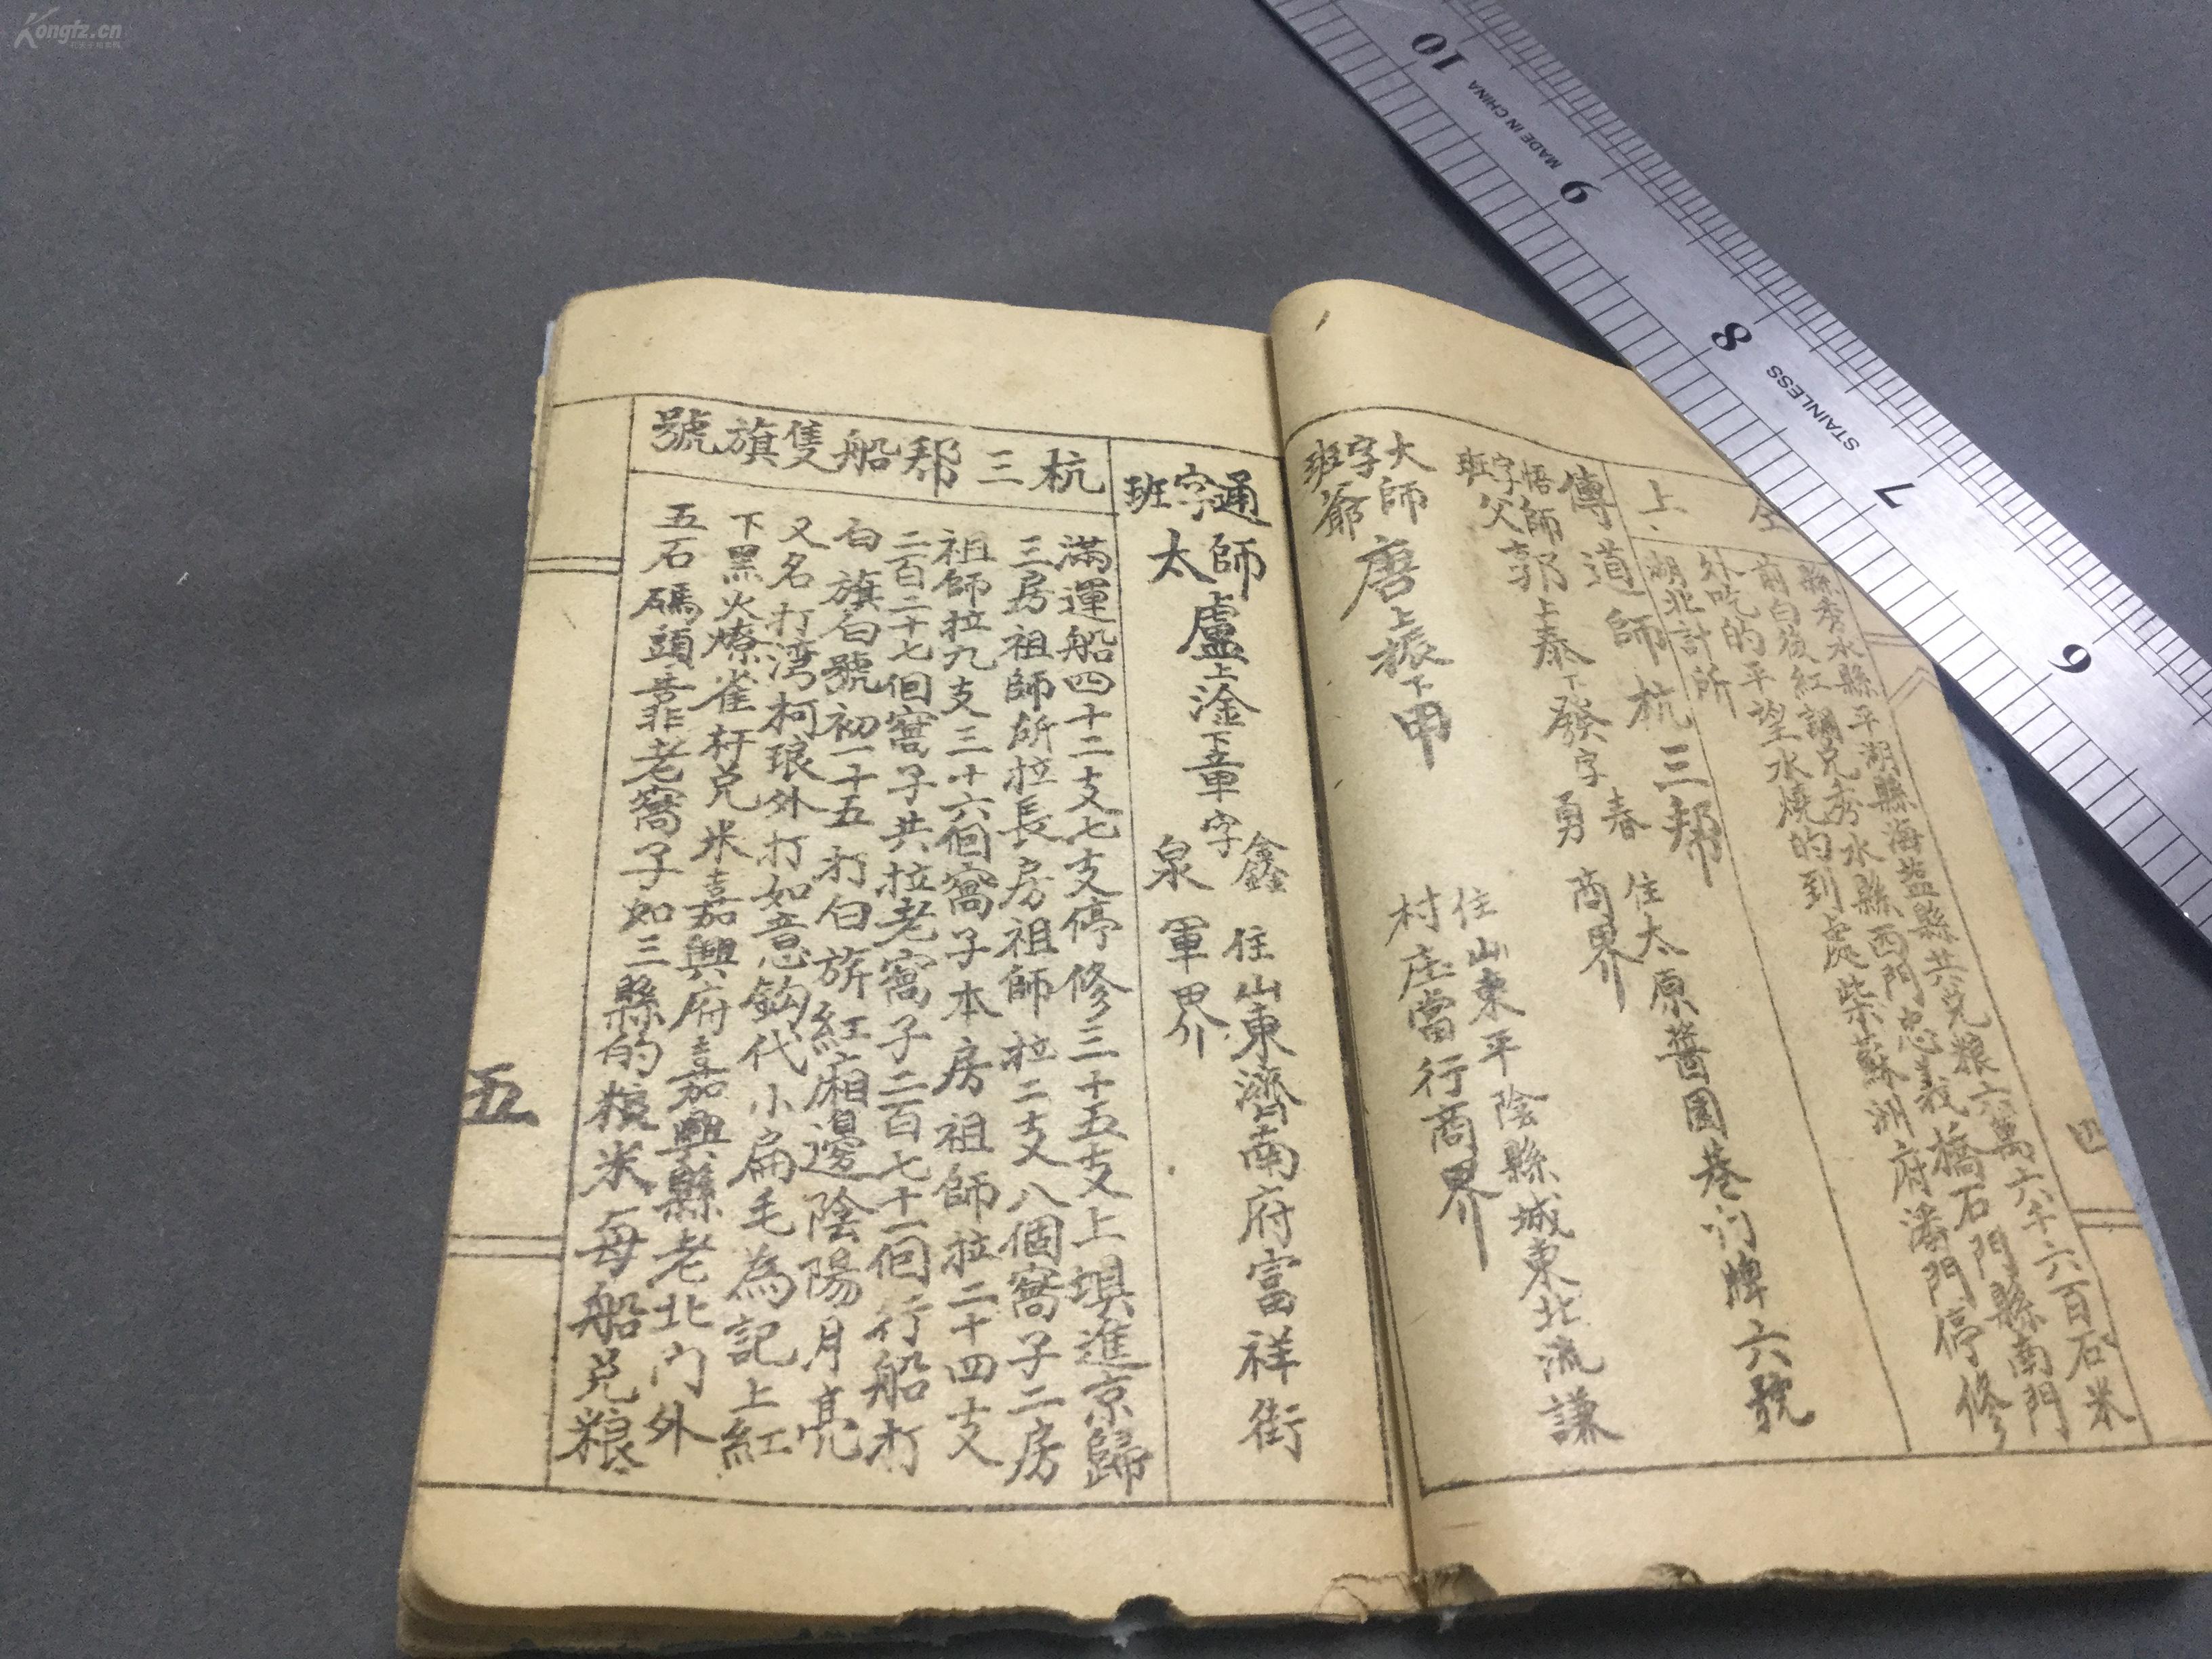 Kongfz.cn
10
MADE IN CHINA
9
8
STAINLESS
7
6
四
縣秀水縣平湖縣海盐縣共兑粮六萬六千六百石米
前白後紅調兑秀水縣西門忠義橋石門縣南門
外吃的平望水燒的到處柴蘇洲府濤門停修
湖北計所
上
傳道師杭三帮
悟字班
師父
郭上泰下發字春勇
住太原醬園巷门牌六號
商界
大字班
師爺
唐上振下甲
住山東平陰縣城東北流謙
村庄當行商界
通字班
師太
盧上淦下章字鑫泉
住山東濟南府富祥街
軍界
杭三帮船隻旗號
滿運船四十二支七支停修三十五支上壩進京歸
三房祖師所拉長房祖師拉二支八個窩子二房
祖師拉九支三十六個窩子本房祖師拉二十四支
二百二十七個窩子共拉老窩子二百七十一個行船打
白旗白號初一十五打白旂紅廂邊陰陽月亮
又名打湾柯琅外打如意鈎代小扁毛為記上紅
下黑火燎雀杆兑米嘉興府嘉興縣老北门外
五石碼頭靠老窩子如三縣的粮米每船兑粮
五